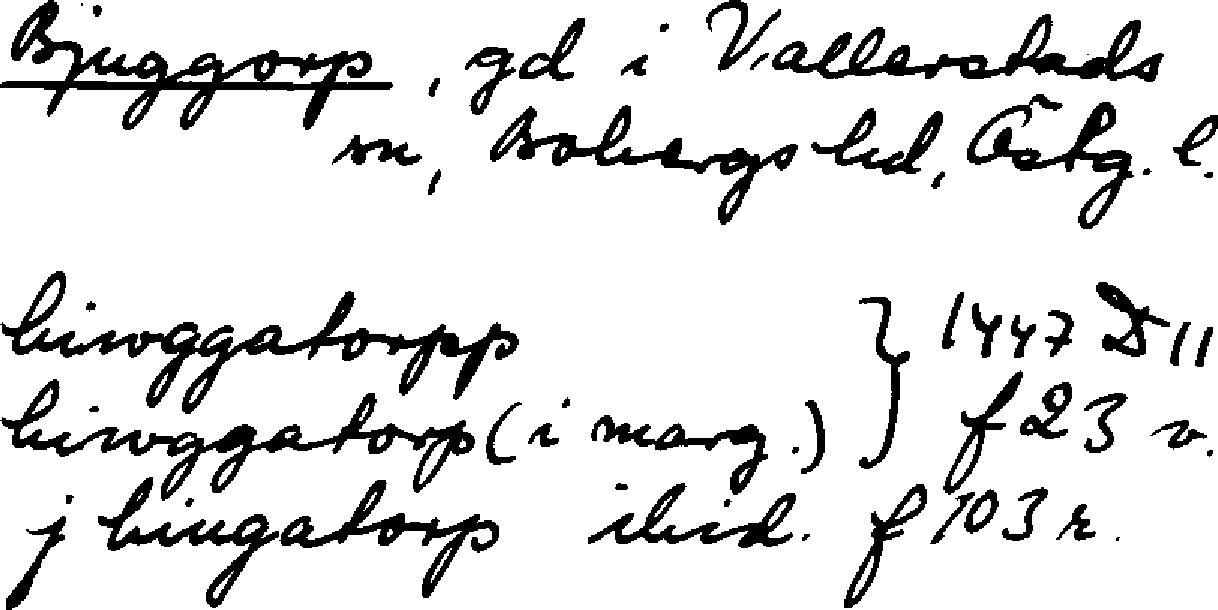 Bjuggorp, gd i Vallerstads
sn, Bobergs hd, Östg. l.
biwggatorpp } 1447 D 11
biwggatorp (i marg.) } f 23 v.
j biugatorp ibid. f 103 r.